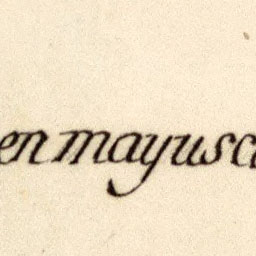 en mayusc